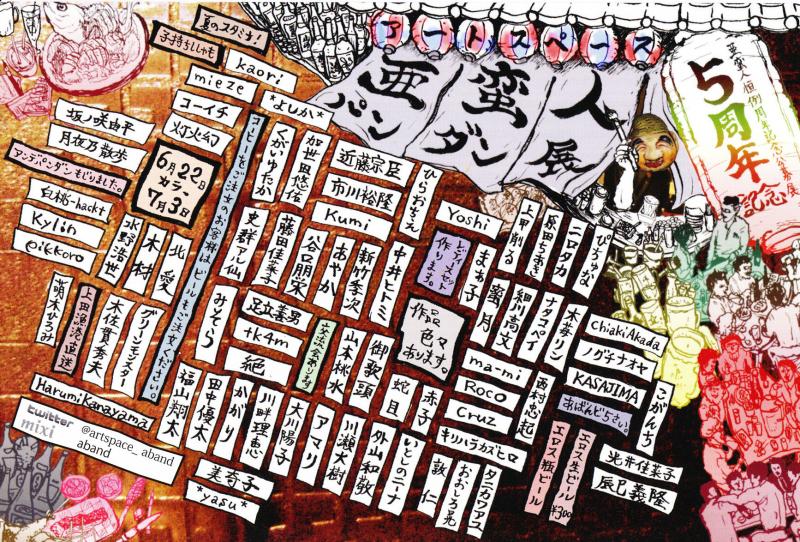 アートスペース
亜蛮人
パンダン展
亜蛮人恒例周年記念公募展
5周年
記念
夏のスタジオ!
子持ちししゃも
kaori
mieze
コーイチ
*さしみ*
灯火幻
坂ノ咲由平
月夜乃散歩
アンデパンダンもじりました。
白桃-hackt
Kylin
eikkoro
6月22日
カラー
7月3日
コーヒーをご注文のお客様はビールもご注文ください。
くがいゆたか
加世田悠佑
近藤宗臣
市川裕隆
Kumi
ひらおちえ
Yoshi
上甲削る
原田ちあき
ニロタカ
ぴちゅな
北愛
木村
水野浩世
史群アル仙
藤田佳菓子
谷口朋栄
あやか
新竹季次
中井とトミ
レディスセット
作ります。
まぁ子
蜜月
細川高文
ナタヲヘイ
木葬リン
ChiakiAkada
ノグチナオヤ
KASAJIMA
あばんど5さい。
こがんち
萌木ひろみ
上田漁港直送
木佐貫秀夫
グリーンモンスター
みそら
足立善男
tk4m
絶
立派な余あります
山本桃水
御歌頭
作品
色々
あります。
ma-mi
Roco
Cruz
キリハラカズヒロ
西村忠起
HarumiKanayama
福山翔太
田中優太
かがり
川畔理恵
大川陽子
アマリ
川瀬大樹
蛇目
赤子
外山和敬
いとのニーナ
敦仁
おおしろ晃
タニカワアユ
エロス生ビール ¥300
エロス瓶ビール
光井佳菜子
辰巳義隆
美奇子
*yasu*
twitter @artspace_aband
mixi aband